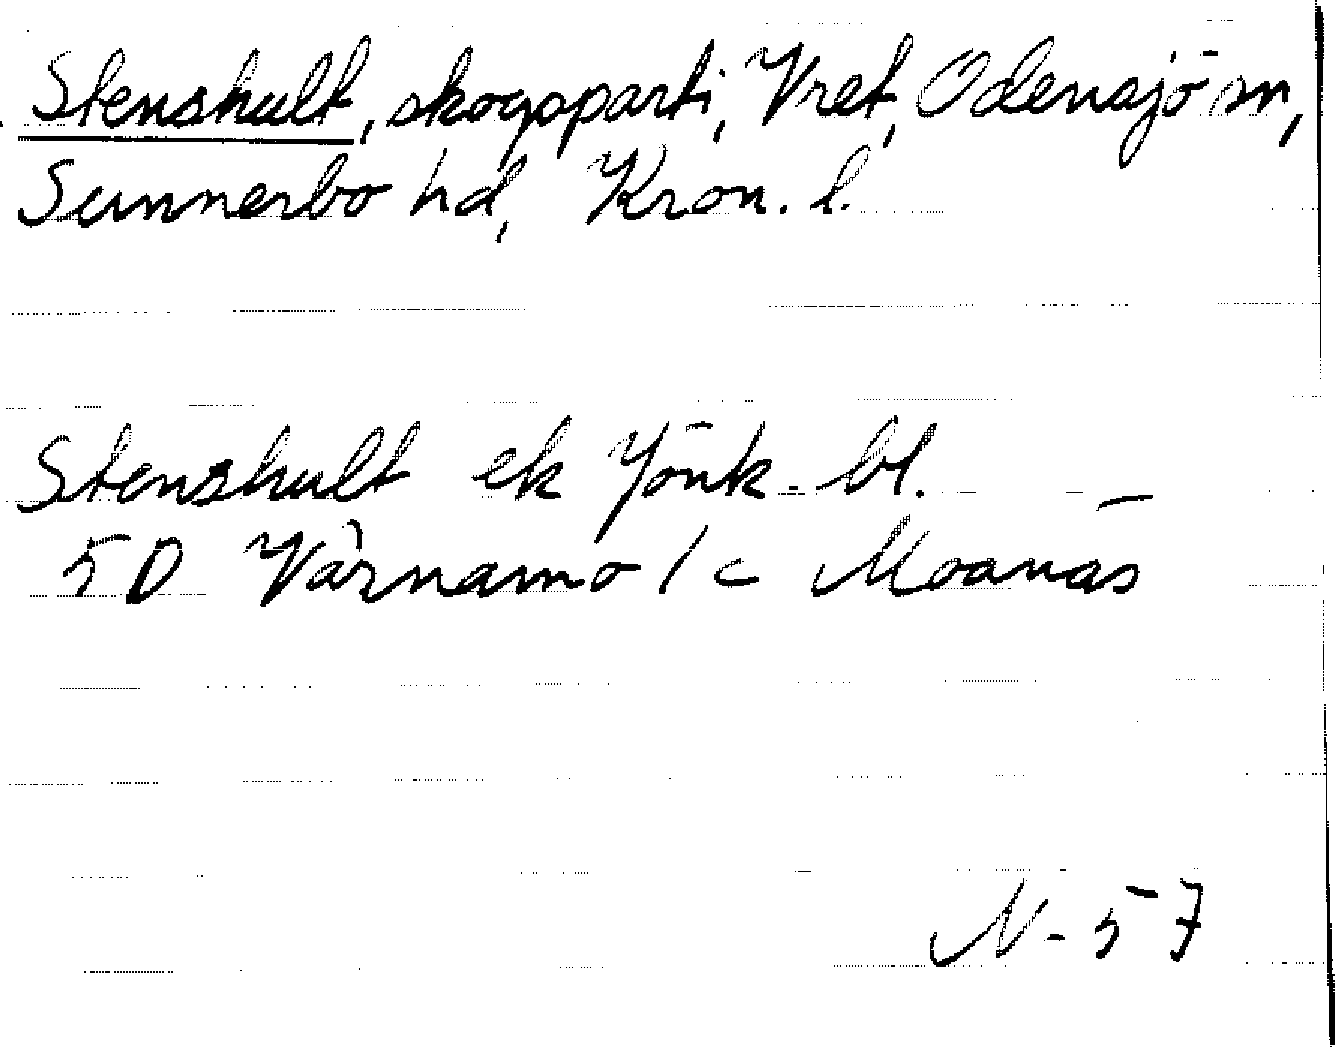 Stenshult, skogsparti, Vret, Odensjö sn,
Sunnerbo hd, Kron. l.
Stenshult ek Jönk. bl.
5D Värnamo 1c Moanäs
N-57